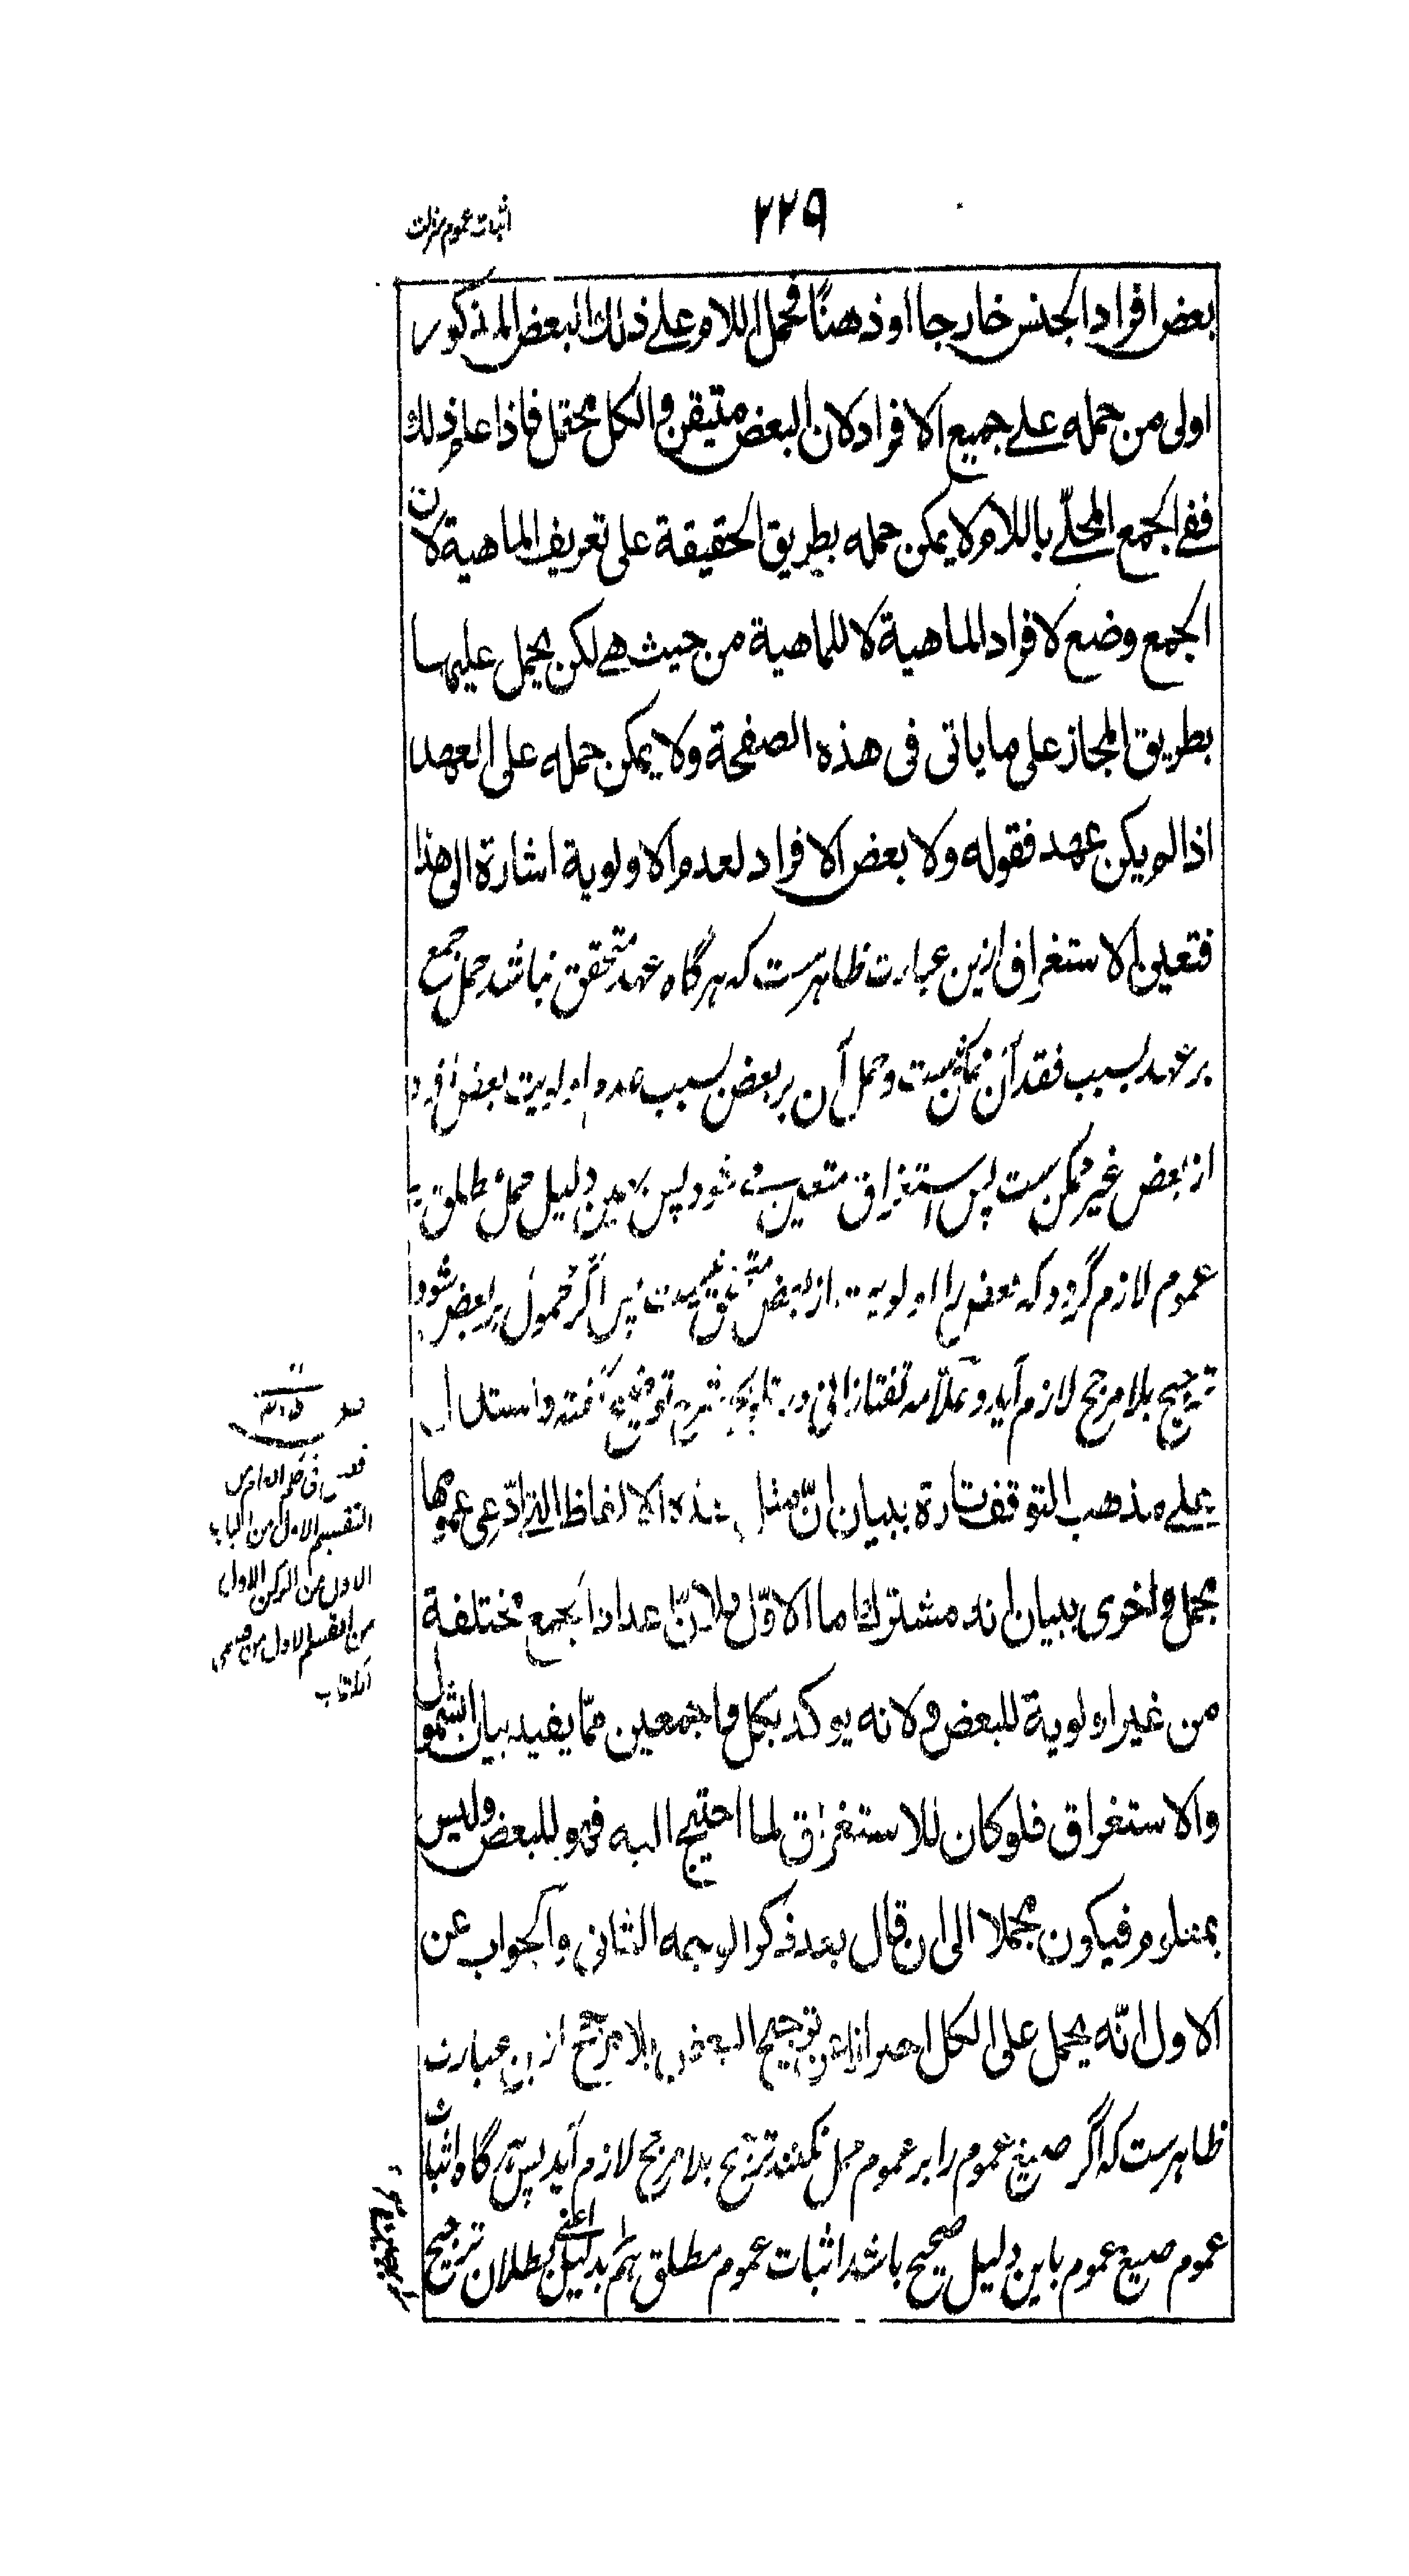 اثبات عموم منزلت
٢٢٩
بعض افراد الجنس خارجا او ذهنًا فحمل اللام على ذلك البعض المذكور
اولى من حمله على جميع الافراد لان البعض متيقن والكل محتمل فاذا علم ذلك
ففى الجمع المحلّى باللام لا يمكن حمله بطريق الحقيقة على تعريف الماهية لان
الجمع وضع لافراد الماهية لا للماهية من حيث هى لكن يحمل عليها
بطريق المجاز على ما ياتى فى هذه الصفحة ولا يمكن حمله على العهد
اذا لم يكن عهد فقوله ولا بعض الافراد لعدم الاولوية اشارة الى هذا
فتعين الاستغراق ازين عبارت ظاهرست كه هرگاه عهد متحقق نباشد حمل جمع
بر عهد بسبب فقدان ممكن نيست و حمل آن بر بعض بسبب عدم اولويت بعض افراد
از بعض غير ممكن ست پس استغراق متعين مے شود پس بهمين دليل حمل مطلق بر
عموم لازم گردد كه بعض را اولويت از بعض متحقق نيست پس اگر محمول بر بعض شود
ترجيح بلا مرجح لازم آيد و علّامه تفتازانى در تلويح شرح توضيح گفته واستدل
على مذهب التوقف تارة ببيان انّ مثل هذه الالفاظ التى ادّعى عمومها
مجمل واخرى ببيان انه مشترك اما الاوّل فلانّ اعداد الجمع مختلفة
من غير اولوية للبعض ولانه يوكد بكل واجمعين ممّا يفيد بيان الشمول
والاستغراق فلو كان للاستغراق لما احتيج اليه فهو للبعض وليس
بمعلوم فيكون مجملا الى ان قال بعد ذكر الوجه الثانى والجواب عن
الاول انّه يحمل على الكل احترازا عن ترجيح البعض بلا مرجح ازين عبارت
ظاهرست كه اگر صيغ عموم را بر عموم حمل نكنند ترجيح بلا مرجح لازم آيد پس هرگاه اثبات
عموم صيغ عموم باين دليل صحيح باشد اثبات عموم مطلق هم بدليل اعنى بطلان ترجيح
التقسيم الاول من الباب
الاول من الركن الاول
من القسم الاول من
الكتاب